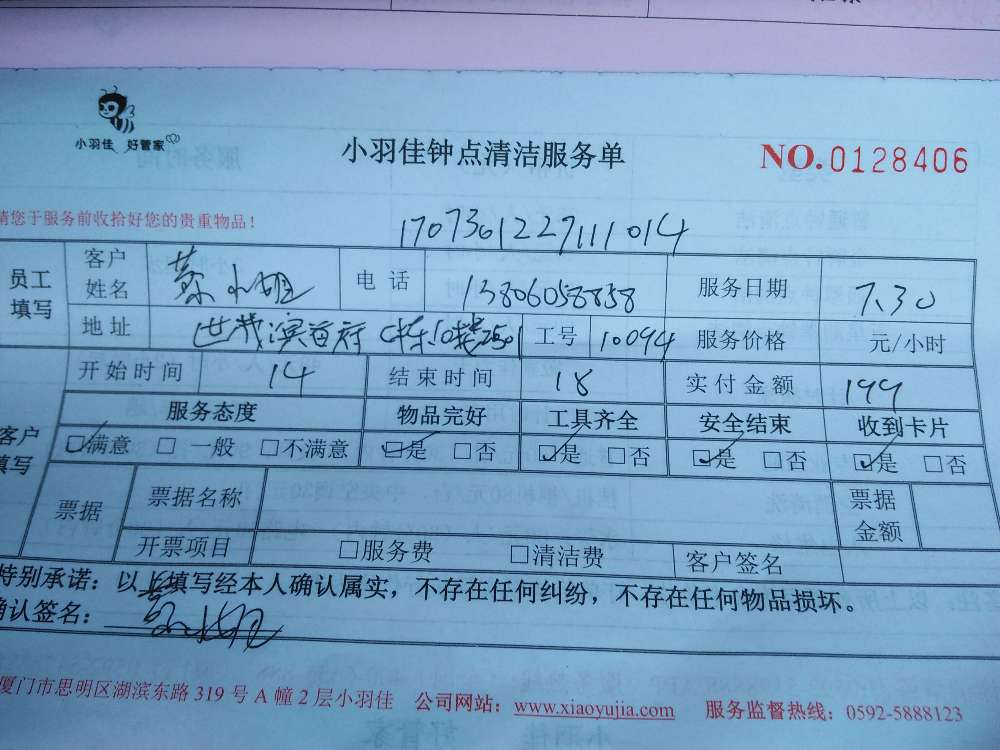 小羽佳 好管家
小羽佳钟点清洁服务单
NO.0128406
请您于服务前收拾好您的贵重物品！
1707301227111014
员工填写
客户姓名 蔡小姐 电话 13806058858 服务日期 7.30
地址 世茂滨首府 501 工号 10094 服务价格 元/小时
开始时间 14 结束时间 18 实付金额 199
客户填写
服务态度 物品完好 工具齐全 安全结束 收到卡片
☑满意 □一般 □不满意 ☑是 □否 ☑是 □否 ☑是 □否 ☑是 □否
票据 票据名称 票据金额
开票项目 □服务费 □清洁费 客户签名
特别承诺：以上填写经本人确认属实，不存在任何纠纷，不存在任何物品损坏。
确认签名： 蔡小姐
厦门市思明区湖滨东路 319 号 A 幢 2 层小羽佳 公司网站：www.xiaoyujia.com 服务监督热线：0592-5888123